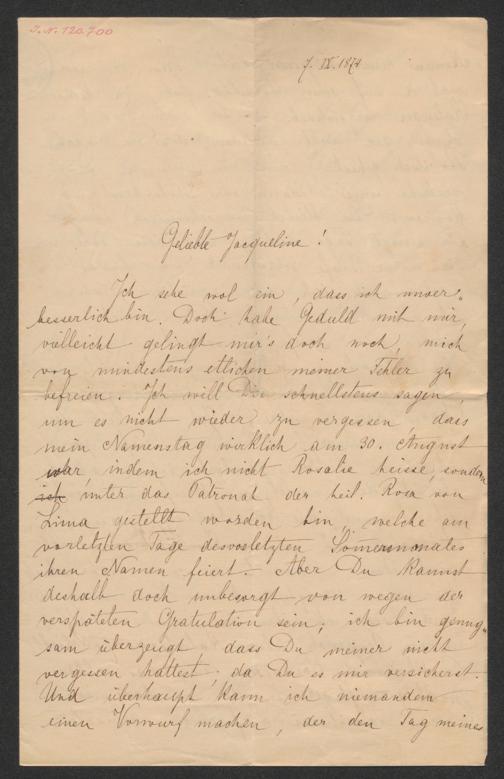 J. N. 120.700
7. IX. 1874
Geliebte Jacqueline!
Ich sehe wol ein, dass ich unver-
besserlich bin. Doch habe Geduld mit mir,
vielleicht gelingt mir's doch noch, mich
von mindestens etlichen meiner Fehler zu
befreien. Ich will Dir schnellstens sagen,
um es nicht wieder zu vergessen, dass
mein Namenstag wirklich am 30. August
war, indem ich nicht Rosalie heisse, sondern
ich unter das Patronat der heil. Rosa von
Lima gestellt worden bin, welche am
vorletzten Tage des vorletzten Sommermonates
ihren Namen feiert. Aber Du kannst
deshalb doch unbesorgt von wegen der
verspäteten Gratulation sein; ich bin genug-
sam überzeugt, dass Du meiner nicht
vergessen hattest, da Du es mir versicherst.
Und überhaupt kann ich niemandem
einen Vorwurf machen, der den Tag meines